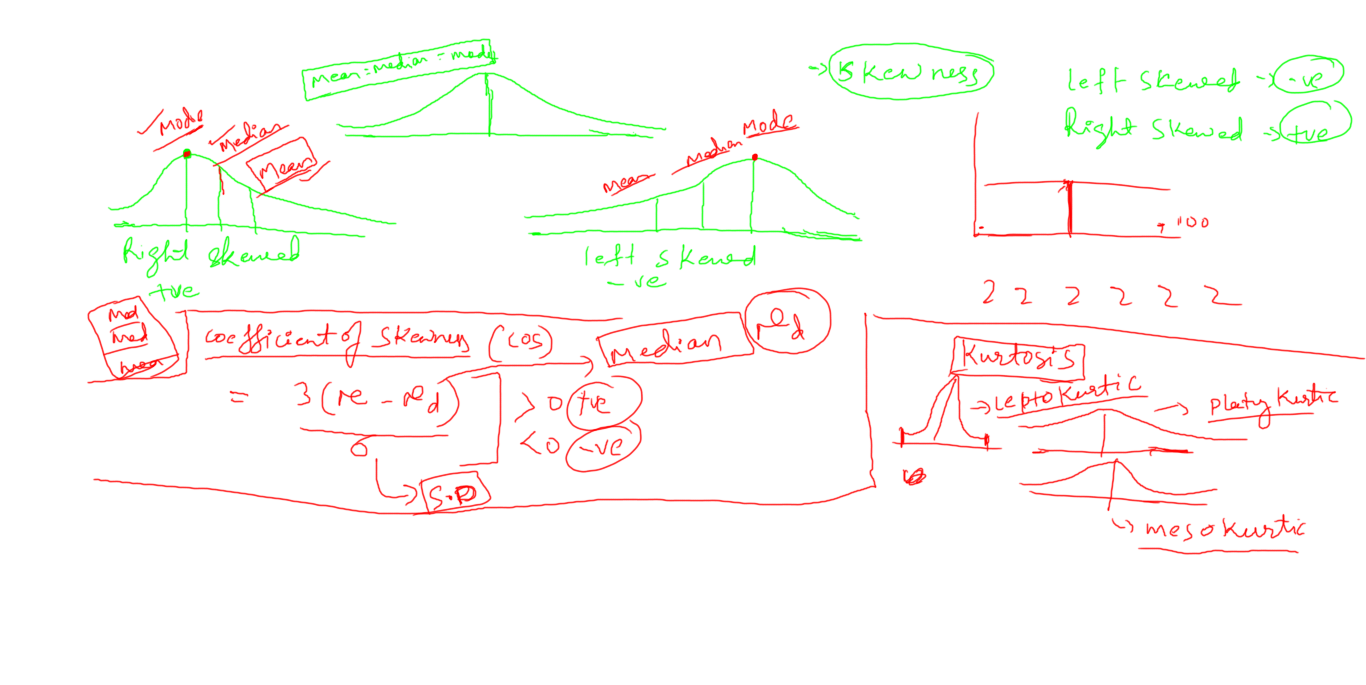 mean = median = mode
→ Skewness
left skewed → -ve
Right Skewed → +ve
✓ Mode
✓ Median
Mean
mean
median
Mode
100
Right skewed
+ve
left skewed
-ve
2 2 2 2 2 2
Mod
med
mean
coefficient of Skewness (COS)
Median
= 3(
σ
> 0 +ve
< 0 -ve
S.D
Kurtosis
→ Leptokurtic
→ Platykurtic
→ mesokurtic